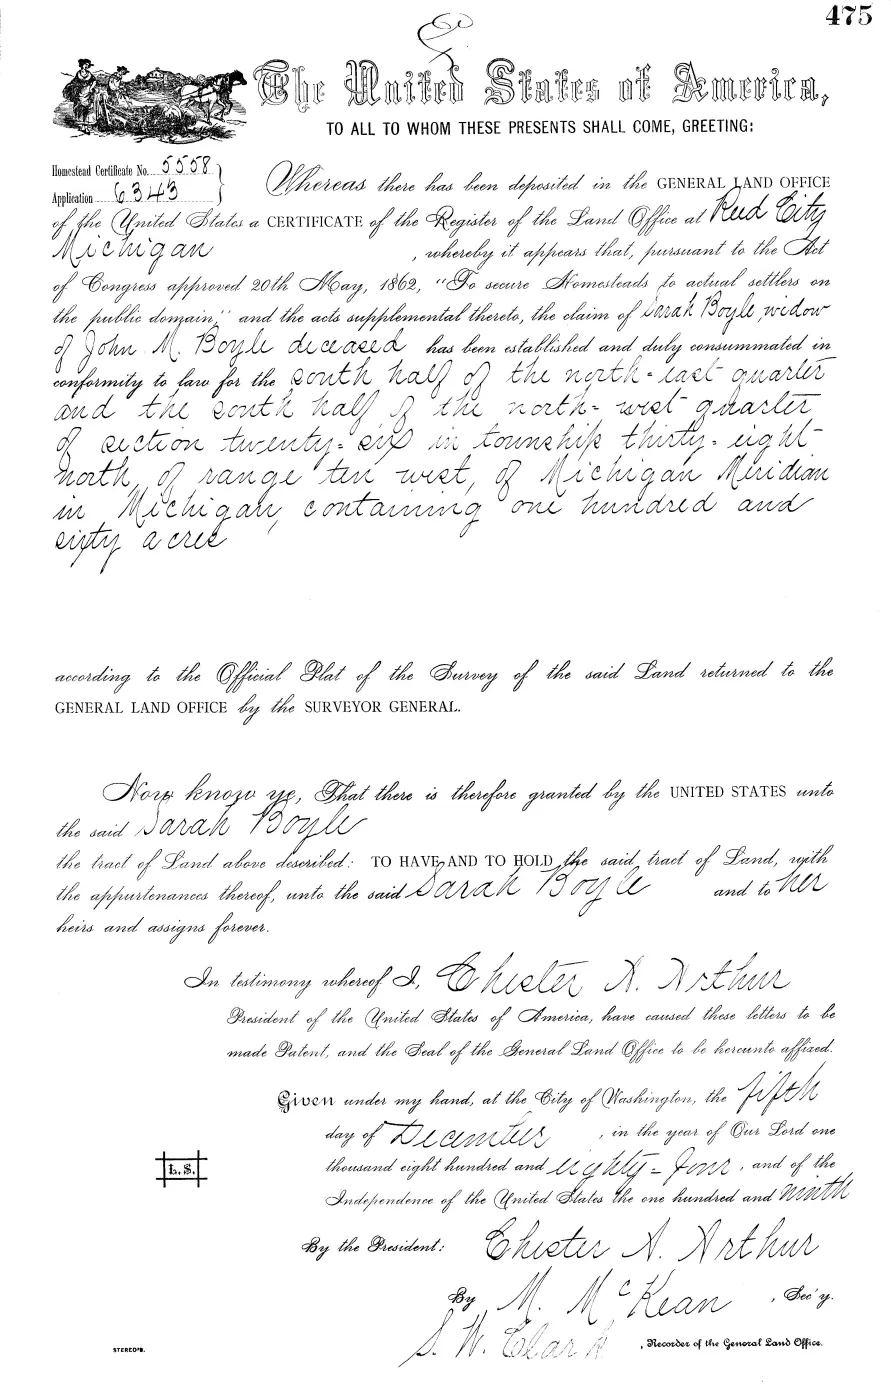 475
The United States of America,
TO ALL TO WHOM THESE PRESENTS SHALL COME, GREETING:
Homestead Certificate No. 5558
Application 6343
Whereas there has been deposited in the GENERAL LAND OFFICE
of the United States a CERTIFICATE of the Register of the Land Office at Reed City
Michigan, whereby it appears that, pursuant to the Act
of Congress approved 20th May, 1862, "To secure Homesteads to actual settlers on
the public domain," and the acts supplemental thereto, the claim of Sarah Boyle, widow
of John M. Boyle deceased has been established and duly consummated in
conformity to law for the south half of the north-east quarter
and the south half of the north-west quarter
of section twenty-six in township thirty-eight
north, of range ten west, of Michigan Meridian
in Michigan, containing one hundred and
sixty acres
according to the Official Plat of the Survey of the said Land returned to the
GENERAL LAND OFFICE by the SURVEYOR GENERAL.
Now know ye, That there is therefore granted by the UNITED STATES unto
the said Sarah Boyle
the tract of Land above described: TO HAVE AND TO HOLD the said tract of Land, with
the appurtenances thereof, unto the said Sarah Boyle and to her
heirs and assigns forever.
In testimony whereof I, Chester A. Arthur
President of the United States of America, have caused these letters to be
made Patent, and the Seal of the General Land Office to be hereunto affixed.
Given under my hand, at the City of Washington, the fifth
day of December, in the year of Our Lord one
thousand eight hundred and eighty-four, and of the
Independence of the United States the one hundred and ninth
L.S.
By the President: Chester A. Arthur
By M. McKean, Sec'y.
S. W. Clark, Recorder of the General Land Office.
STEREO'S.